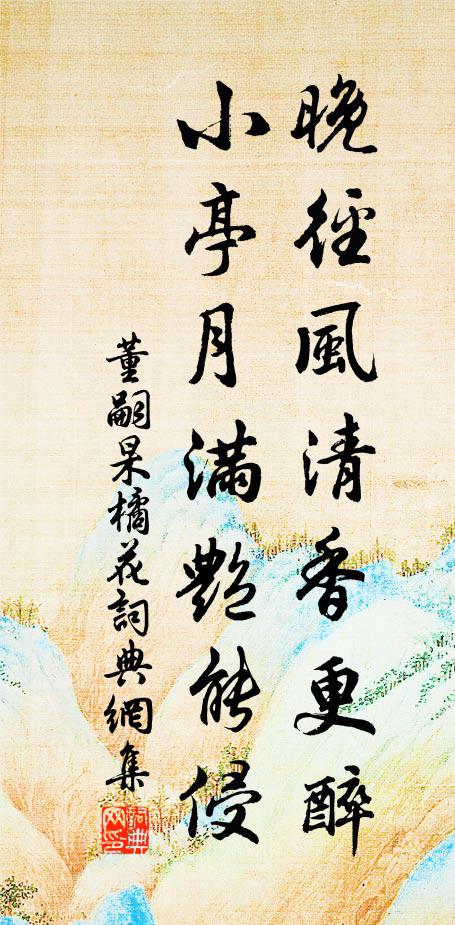 晚徑風清香更醉
小亭月滿艷能侵
董嗣杲橘花詞典網集
詞典網印